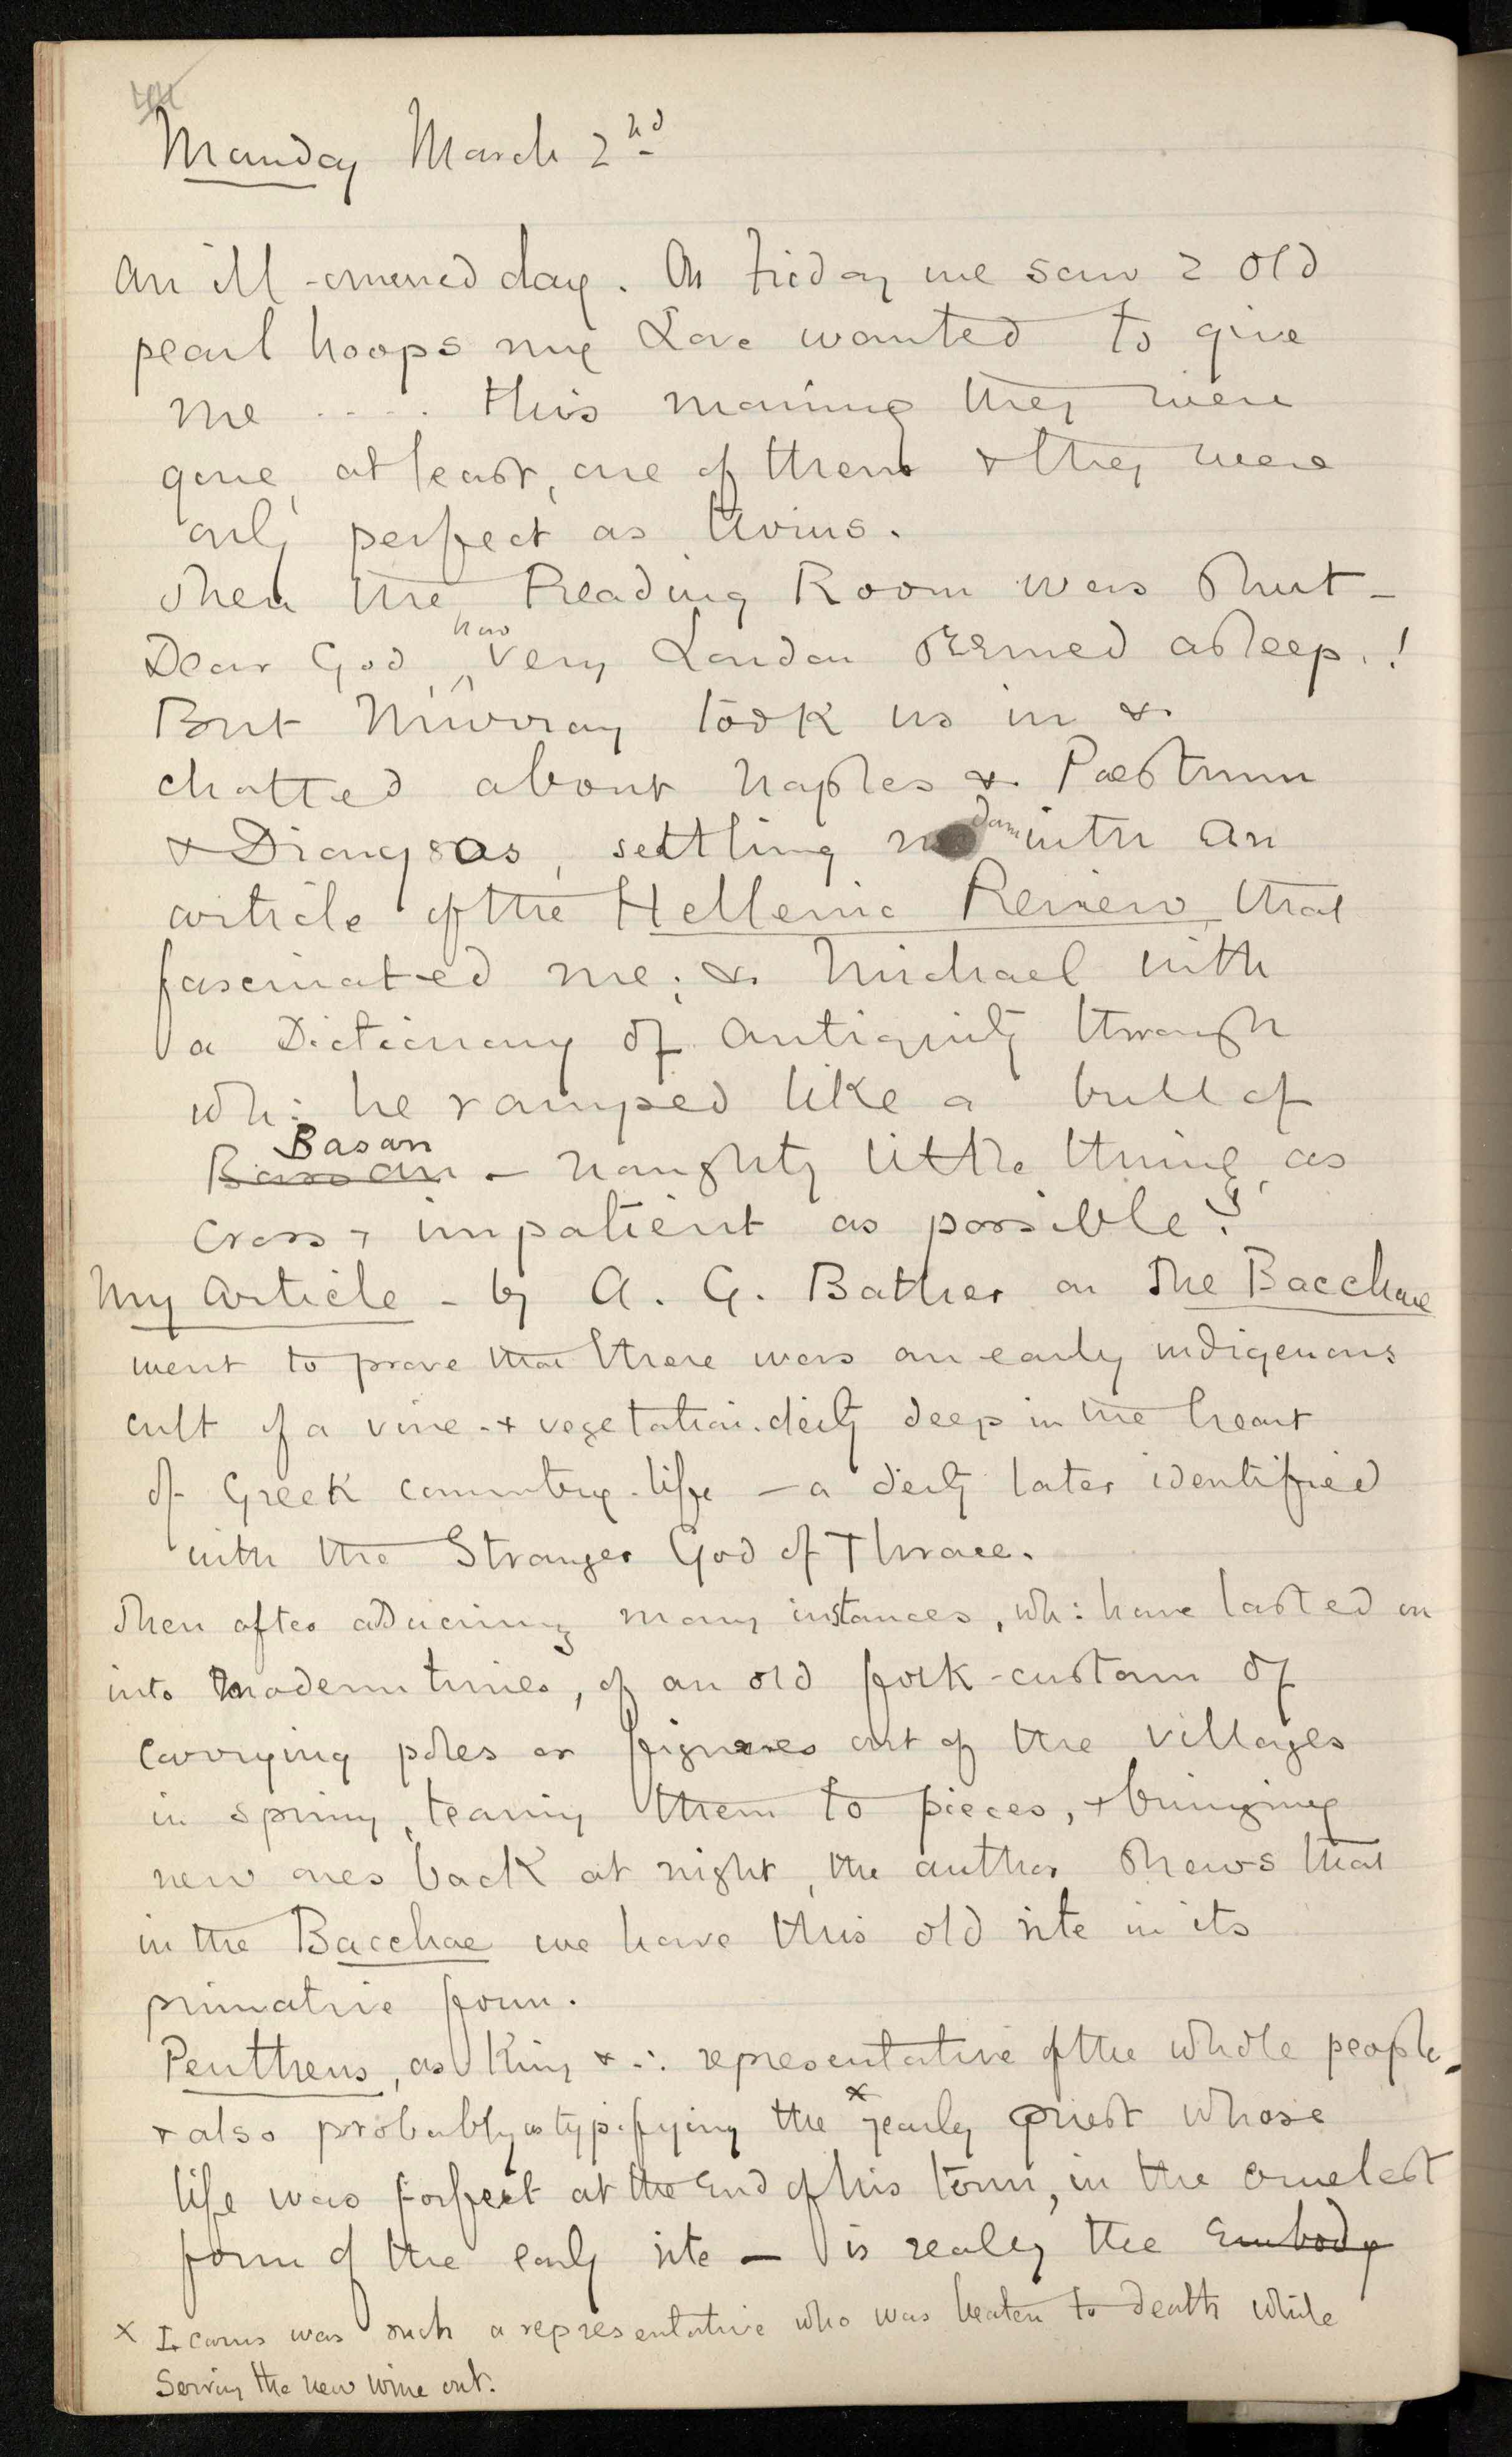 Monday March 2nd
An ill-omened day. On Friday we saw 2 old
pearl hoops my Love wanted to give
me ..... this morning they were
gone, at least, one of them & they were
only perfect as twins.
Then the Reading Room was shut -
Dear God, how very London seemed asleep.!
But Murray took us in &
chatted about Naples & Paestum
& Dionysos, settling me down with an
article of the Hellenic Review that
fascinated me; & Michael with
a Dictionary of Antiquity through
wh: he ramped like a bull of
Bassan Basan - naughty little thing, as
cross & impatient as possible!
My Article - by A. G. Bather on The Bacchae
went to prove that there was an early indigenous
cult of a vine- & vegetation-deity deep in the heart
of Greek country-life - a deity later identified
with the Stranger God of Thrace.
Then after adducing many instances, wh: have lasted on
into modern times, of an old folk-custom of
carrying poles or figures out of the villages
in spring, tearing them to pieces, & bringing
new ones back at night, the author shews that
in the Bacchae we have this old rite in its
primative form.
Pentheus, as King & ∴ representative of the whole people -
& also probably as typifying the x yearly priest whose
life was forfeit at the End of his term, in the cruelest
form of the early rite — is really the Embody
x Icarus was such a representative who was beaten to death while
Serving the new wine out.